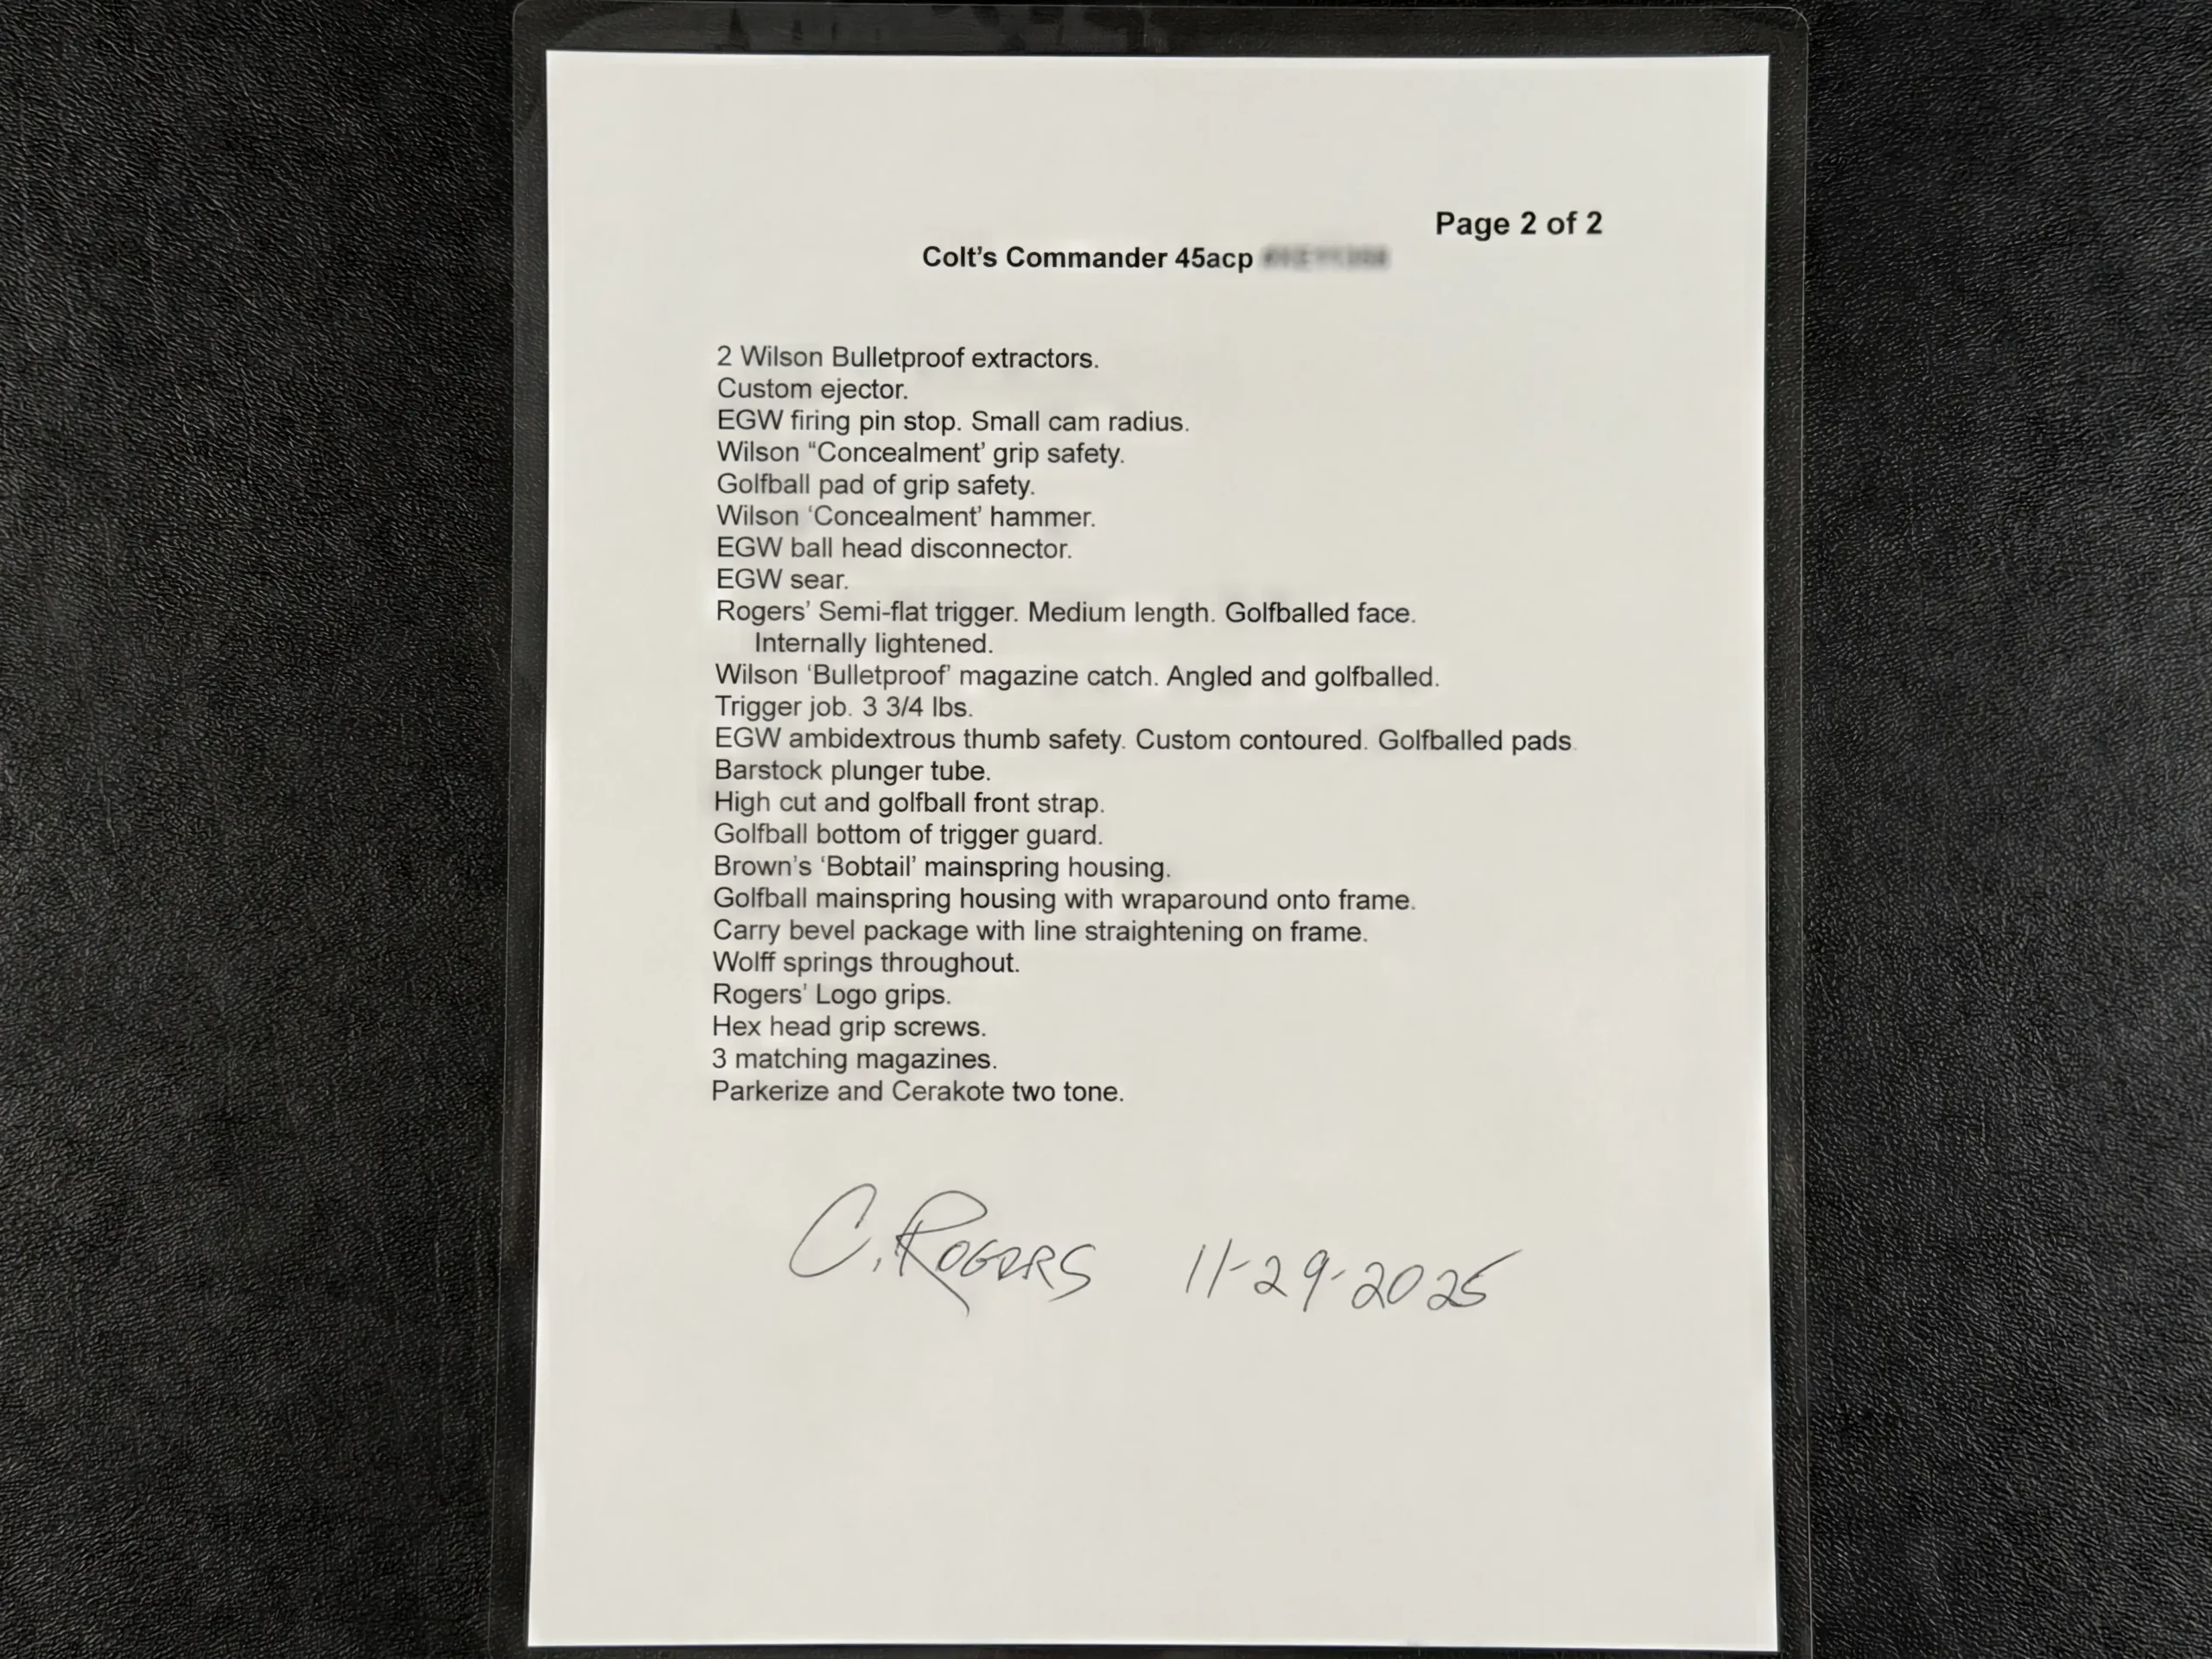 Page 2 of 2
Colt’s Commander 45acp
2 Wilson Bulletproof extractors.
Custom ejector.
EGW firing pin stop. Small cam radius.
Wilson “Concealment’ grip safety.
Golfball pad of grip safety.
Wilson ‘Concealment’ hammer.
EGW ball head disconnector.
EGW sear.
Rogers’ Semi-flat trigger. Medium length. Golfballed face.
Internally lightened.
Wilson ‘Bulletproof’ magazine catch. Angled and golfballed.
Trigger job. 3 3/4 lbs.
EGW ambidextrous thumb safety. Custom contoured. Golfballed pads.
Barstock plunger tube.
High cut and golfball front strap.
Golfball bottom of trigger guard.
Brown’s ‘Bobtail’ mainspring housing.
Golfball mainspring housing with wraparound onto frame.
Carry bevel package with line straightening on frame.
Wolff springs throughout.
Rogers’ Logo grips.
Hex head grip screws.
3 matching magazines.
Parkerize and Cerakote two tone.
C. ROGERS 11-29-2025